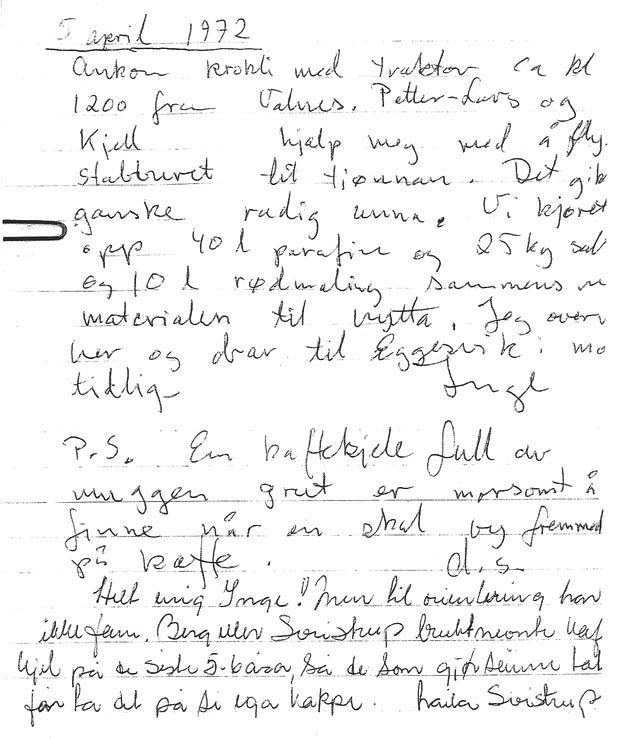 5 april 1972
Ankom krokli med traktor ca kl
1200 fra Valnes. Petter-Lars og
Kjell hjalp meg med å fly.
stabburet til tjønnan. Det gik
ganske radig unna. Vi kjøret
opp 40 l parafin og 25 kg salt
og 10 l rødmaling sammens m
materialen til hytta. Jeg overn
her og drar til Eggesvik i mo
tidlig-
Inge
P.S. En kaffekjele full av
muggen grut er morsomt å
finne når en skal by fremmed
på kaffe.
d.s.
Helt enig Inge! Men til orientering har
ikke fam. Berg eller Sivistrup
kjel på de siste 5-6 åra, så de som
får ta det på si ega kappe. Laila Sivistrup